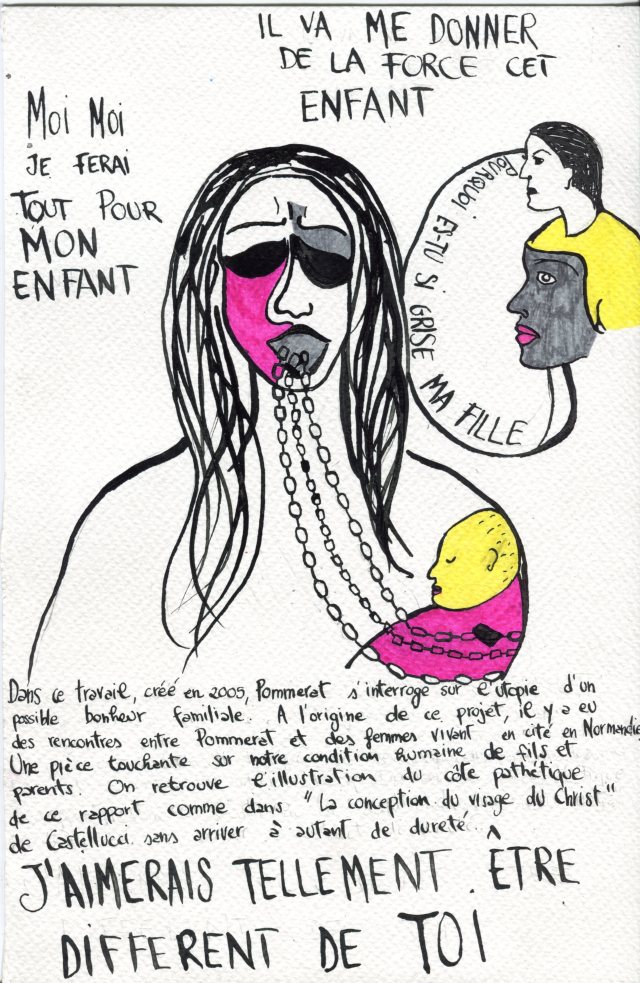 IL VA ME DONNER
DE LA FORCE CET
ENFANT
Moi Moi
JE FERAI
TOUT POUR
MON
ENFANT
POURQUOI ES-TU SI GRISE MA FILLE
Dans ce travail, créé en 2005, Pommerat s'interroge sur l'utopie d'un
possible bonheur familiale. A l'origine de ce projet, il y a eu
des rencontres entre Pommerat et des femmes vivant en cité en Normandie
Une pièce touchante sur notre condition humaine de fils et
parents. On retrouve l'illustration du côte pathétique
de ce rapport comme dans "La conception du visage du Christ"
de Castellucci sans arriver à autant de dureté.
J'AIMERAIS TELLEMENT ÊTRE
DIFFERENT DE TOI